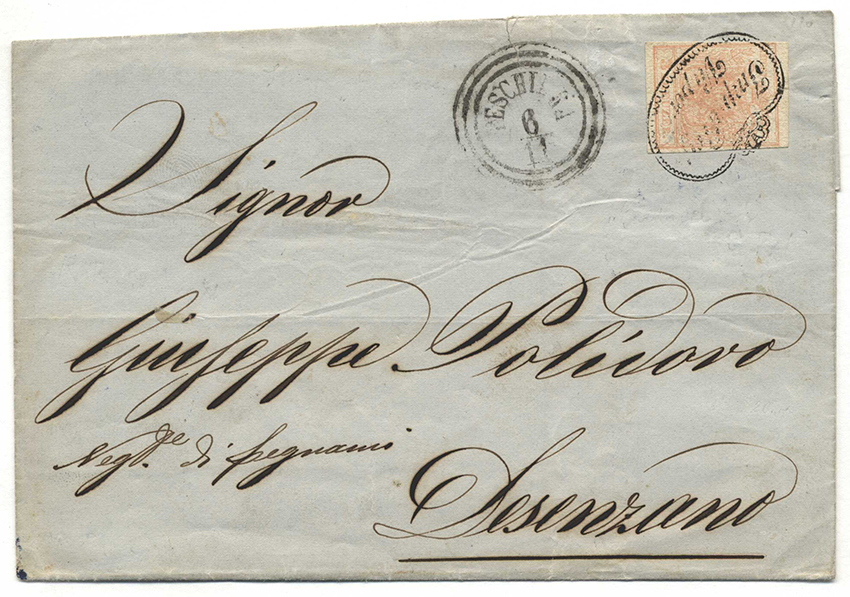 PESCHIERA
6
11
Signor
Giuseppe Polidoro
Negte. di legnami
Desenzano